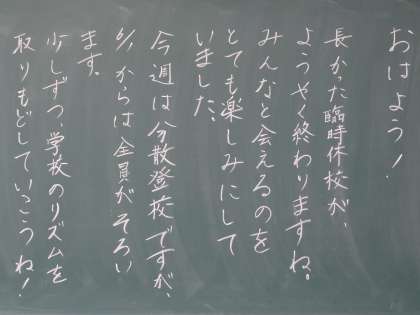 おはよう!
長かった臨時休校が、
ようやく終わりますね。
みんなと会えるのを
とても楽しみにして
いました。
今週は分散登校ですが、
6/1からは全員がそろい
ます。
少しずつ、学校のリズムを
取りもどしていこうね!